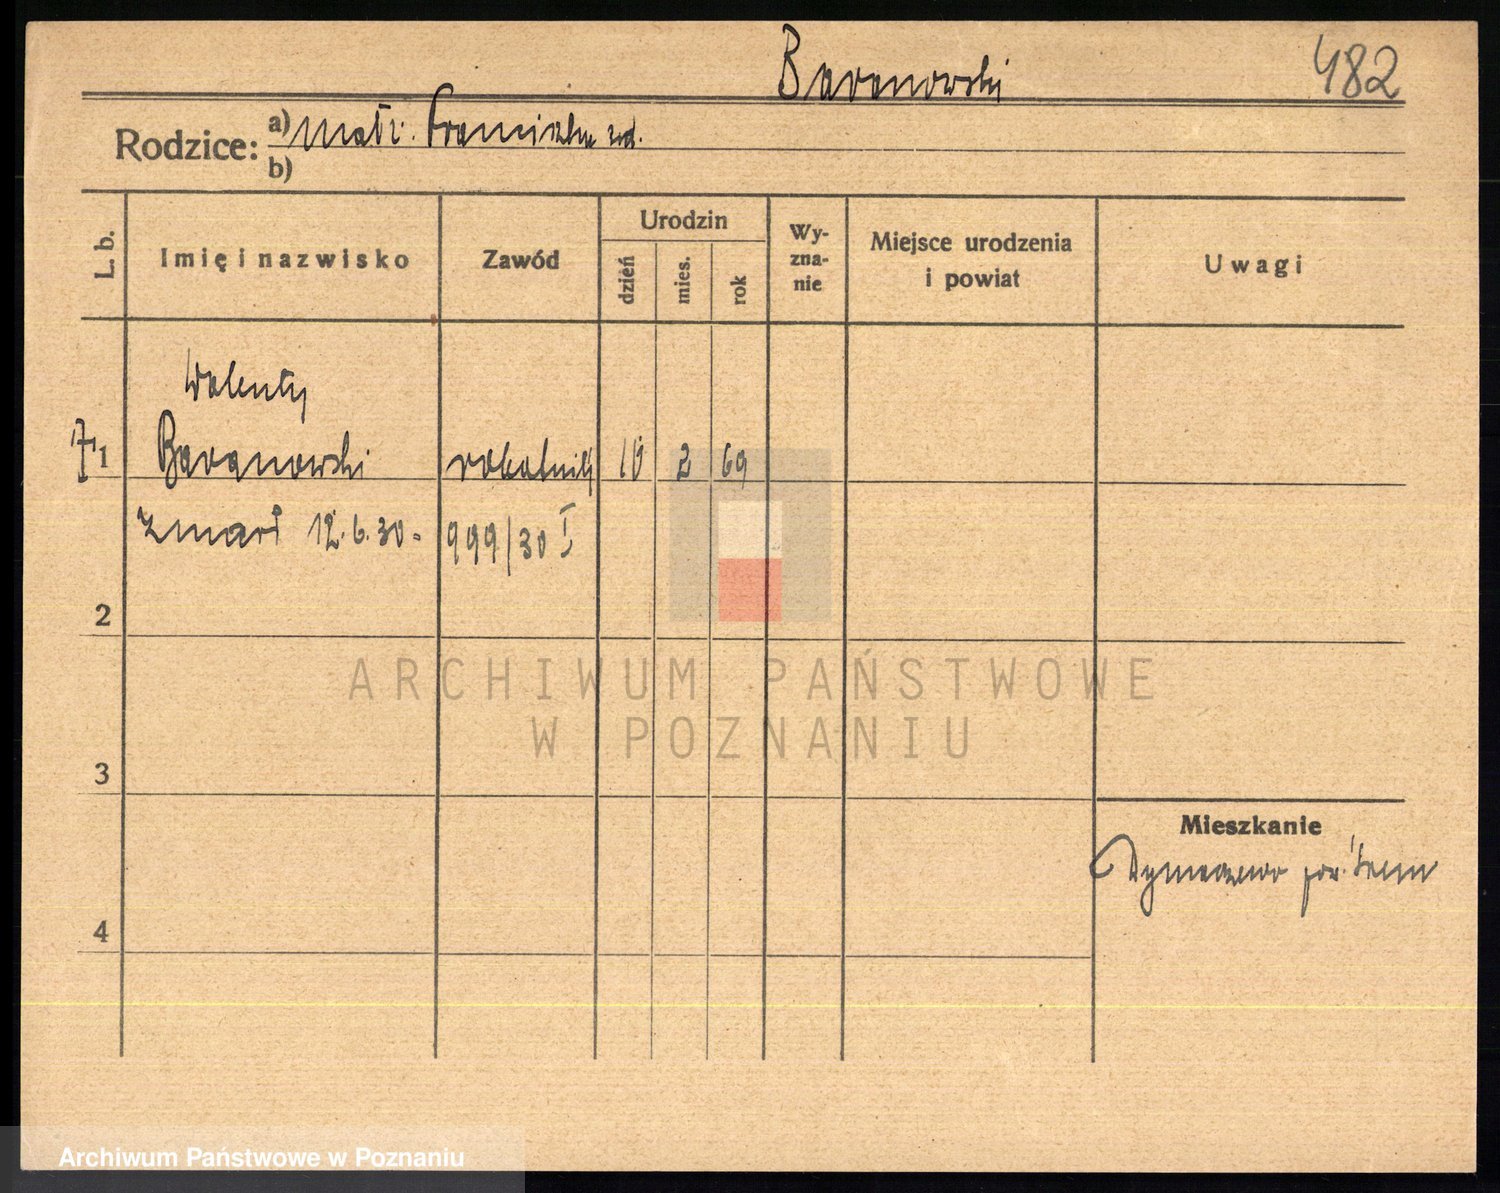 Baranowski
482
Rodzice: a) Małż. Franciszka zd.
b)
L. b.
Imię i nazwisko
Zawód
Urodzin
dzień
mies.
rok
Wy-
zna-
nie
Miejsce urodzenia
i powiat
Uwagi
Walenty
1 Baranowski robotnik 10 2 69
zmarł 12.6.30. 999/30 I
2
3
4
Mieszkanie
pow.
ARCHIWUM PAŃSTWOWE
W POZNANIU
Archiwum Państwowe w Poznaniu